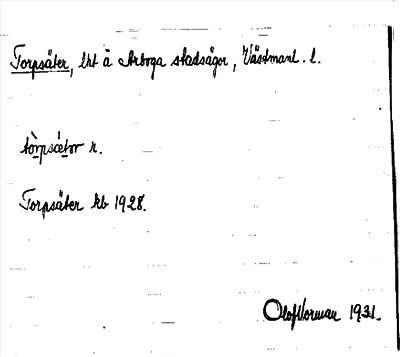 Torpsäter, lht å Arboga stadsägor, Västmanl. l.
tòrpsätər n.
Torpsäter kb 1928.
Olof Norman 1931.